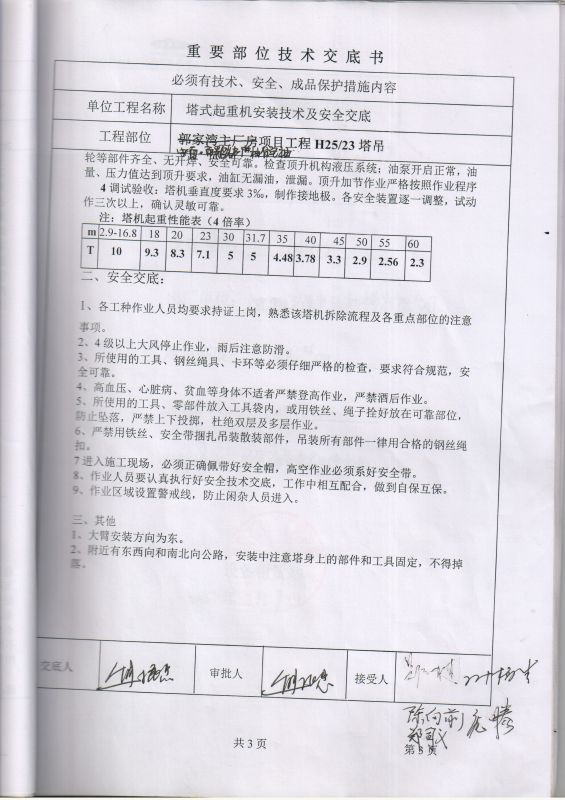 重要部位技术交底书
必须有技术、安全、成品保护措施内容
单位工程名称 塔式起重机安装技术及安全交底
工程部位 郭家湾主厂房项目工程 H25/23 塔吊
轮等部件齐全、无开焊、安全可靠。检查顶升机构液压系统；油泵开启正常，油
量、压力值达到顶升要求，油缸无漏油，泄漏。顶升加节作业严格按照作业程序
4 调试验收：塔机垂直度要求 3‰，制作接地极。各安全装置逐一调整，试动
作三次以上，确认灵敏可靠。
注：塔机起重性能表（4 倍率）
m 2.9-16.8 18 20 23 30 31.7 35 40 45 50 55 60
T 10 9.3 8.3 7.1 5 5 4.48 3.78 3.3 2.9 2.56 2.3
二、安全交底：
1、各工种作业人员均要求持证上岗，熟悉该塔机拆除流程及各重点部位的注意
事项。
2、4 级以上大风停止作业，雨后注意防滑。
3、所使用的工具、钢丝绳具、卡环等必须仔细严格的检查，要求符合规范，安
全可靠。
4、高血压、心脏病、贫血等身体不适者严禁登高作业，严禁酒后作业。
5、所使用的工具、零部件放入工具袋内，或用铁丝、绳子拴好放在可靠部位，
防止坠落，严禁上下投掷，杜绝双层及多层作业。
6、严禁用铁丝、安全带捆扎吊装散装部件，吊装所有部件一律用合格的钢丝绳
扣。
7 进入施工现场，必须正确佩带好安全帽，高空作业必须系好安全带。
8、作业人员要认真执行好安全技术交底，工作中相互配合，做到自保互保。
9、作业区域设置警戒线，防止闲杂人员进入。
三、其他
1、大臂安装方向为东。
2、附近有东西向和南北向公路，安装中注意塔身上的部件和工具固定，不得掉
落。
交底人 审批人 接受人
陈向前
共 3 页
第 3 页